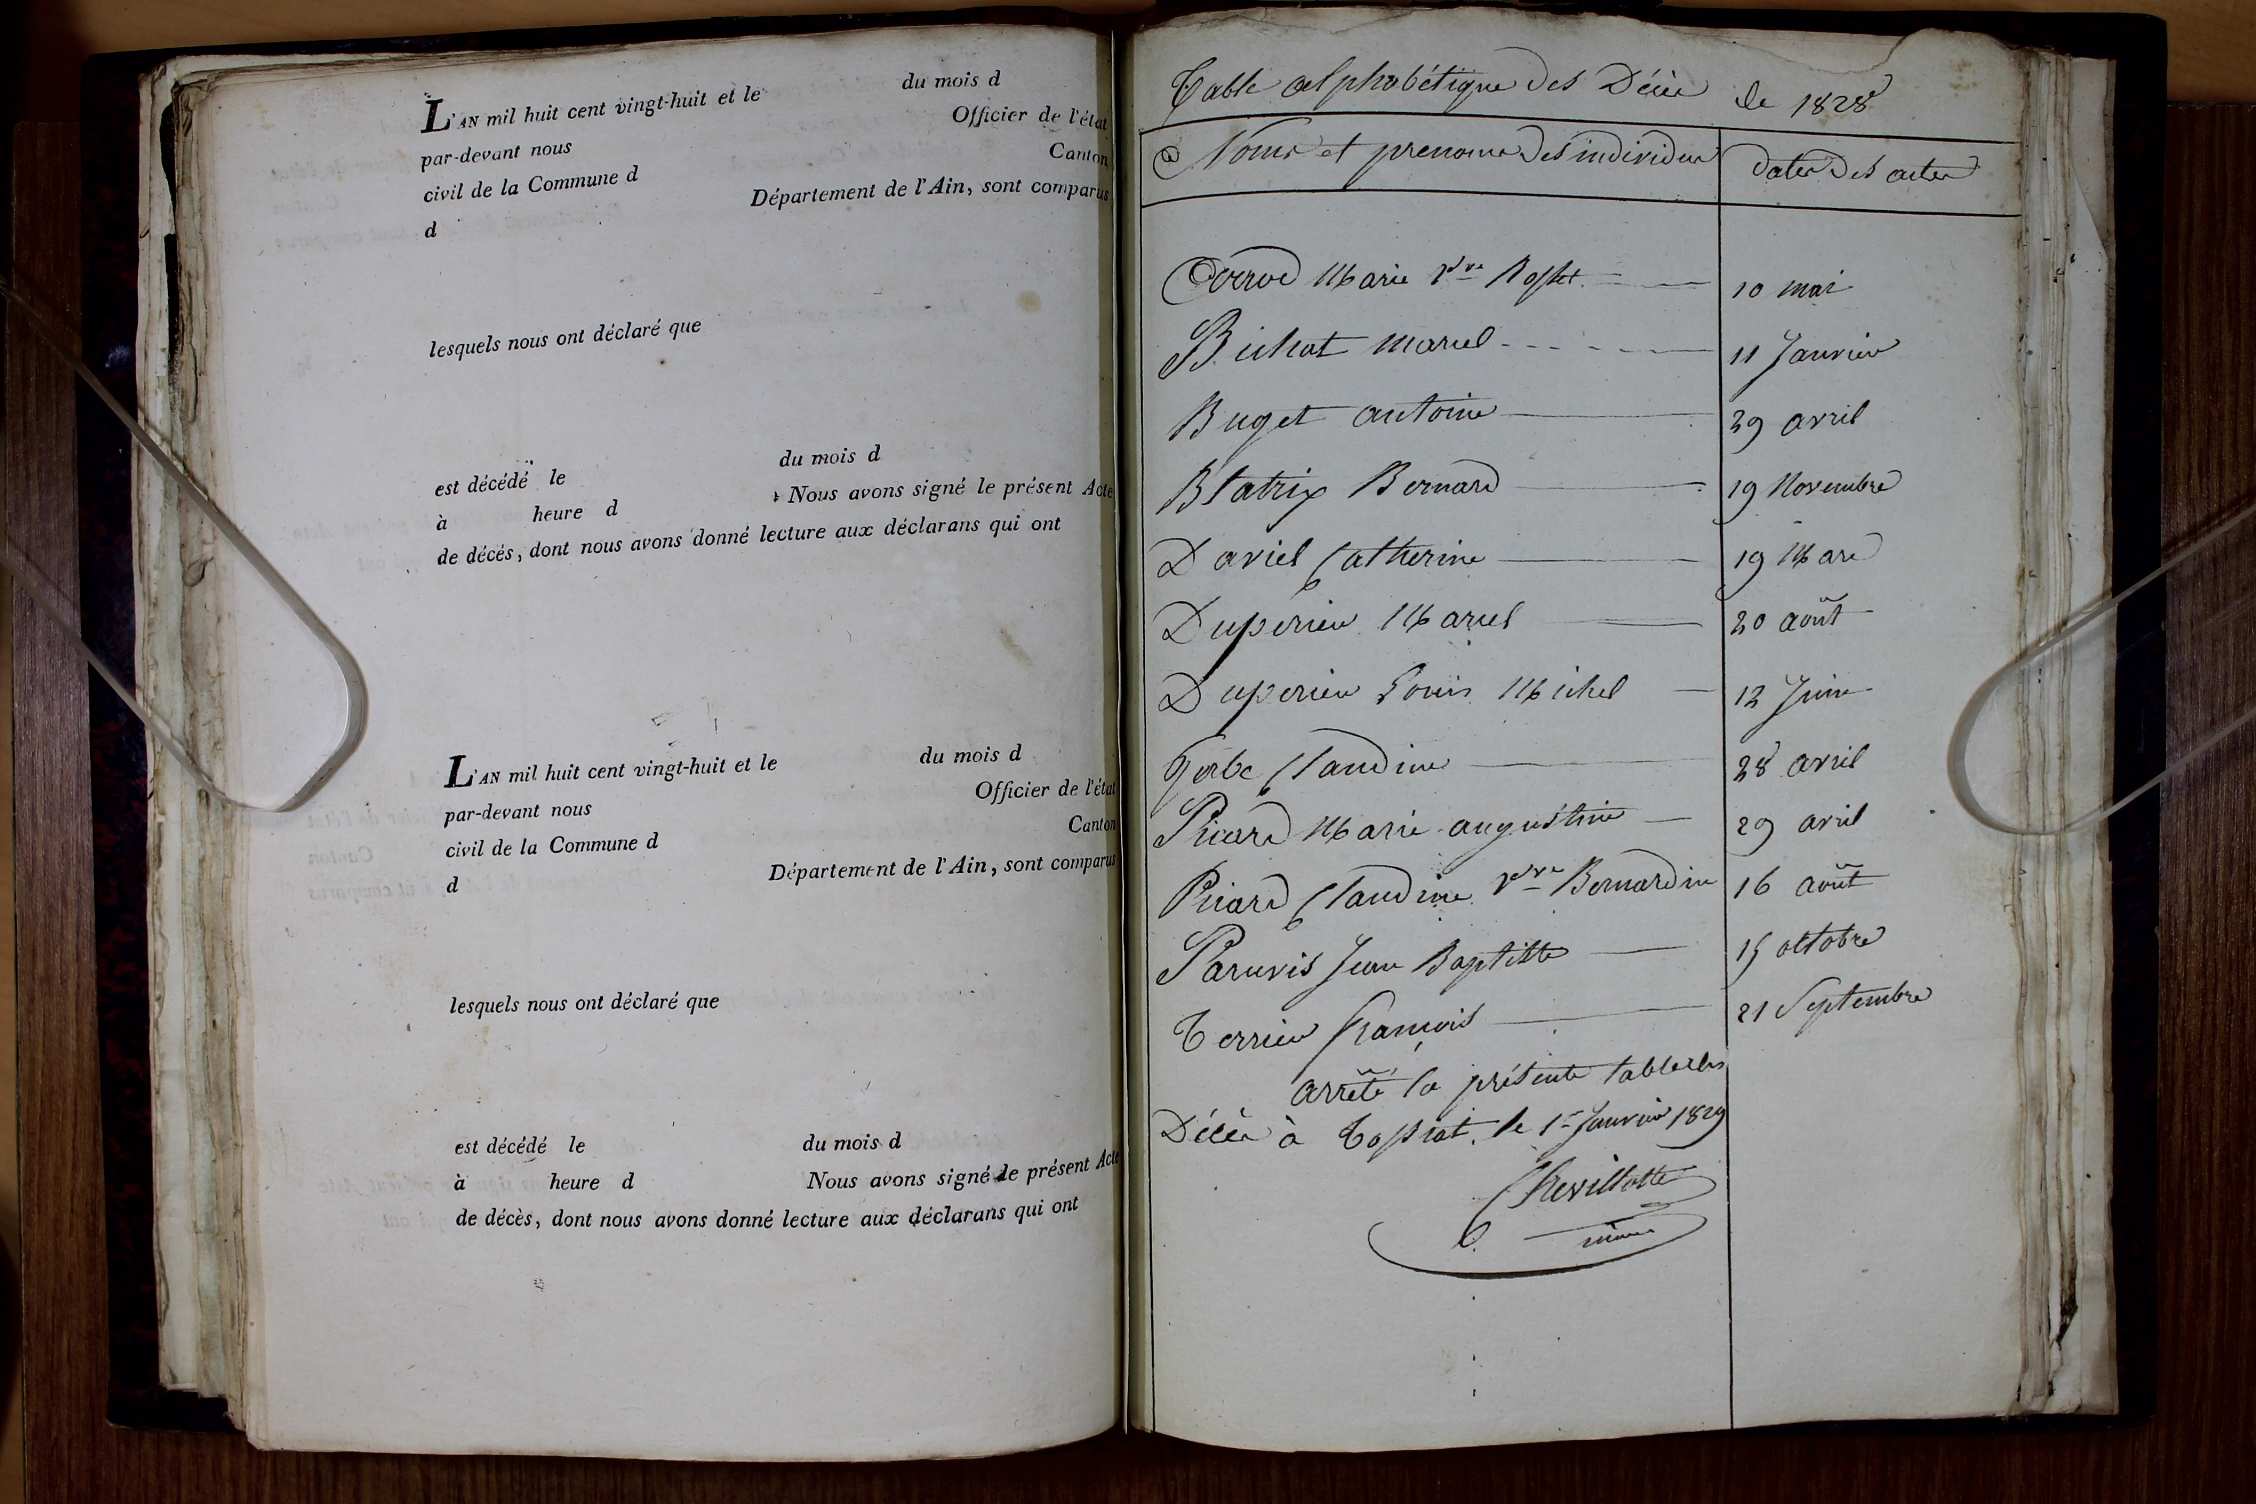 L'AN mil huit cent vingt-huit et le du mois d
par-devant nous Officier de l'état
civil de la Commune d Canton
d Département de l'Ain, sont comparus
lesquels nous ont déclaré que
est décédé le du mois d
à heure d Nous avons signé le présent Acte
de décés, dont nous avons donné lecture aux déclarans qui ont
L'AN mil huit cent vingt-huit et le du mois d
par-devant nous Officier de l'état
civil de la Commune d Canton
d Département de l'Ain, sont comparus
lesquels nous ont déclaré que
est décédé le du mois d
à heure d Nous avons signé le présent Acte
de décès, dont nous avons donné lecture aux déclarans qui ont
Table alphabétique des Décès de 1828
Noms et prenoms des individus dates des actes
Marie Vve 10 mai
Bichat Marcel 11 Janvier
Buget antoine 29 avril
Blatrix Bernard 19 Novembre
Daviel Catherine 19 Mars
Duperieu Marcel 20 août
Duperieu Louis Michel 12 Juin
Gerbe Claudine 28 avril
Picard Marie augustine 29 avril
Picard Claudine Vve Bernardin 16 août
Jean Baptiste 15 octobre
Terrier francois 21 Septembre
arrêté la présente table des
Décès à Tossiat, le 1er Janvier 1829
Chevillotte
maire